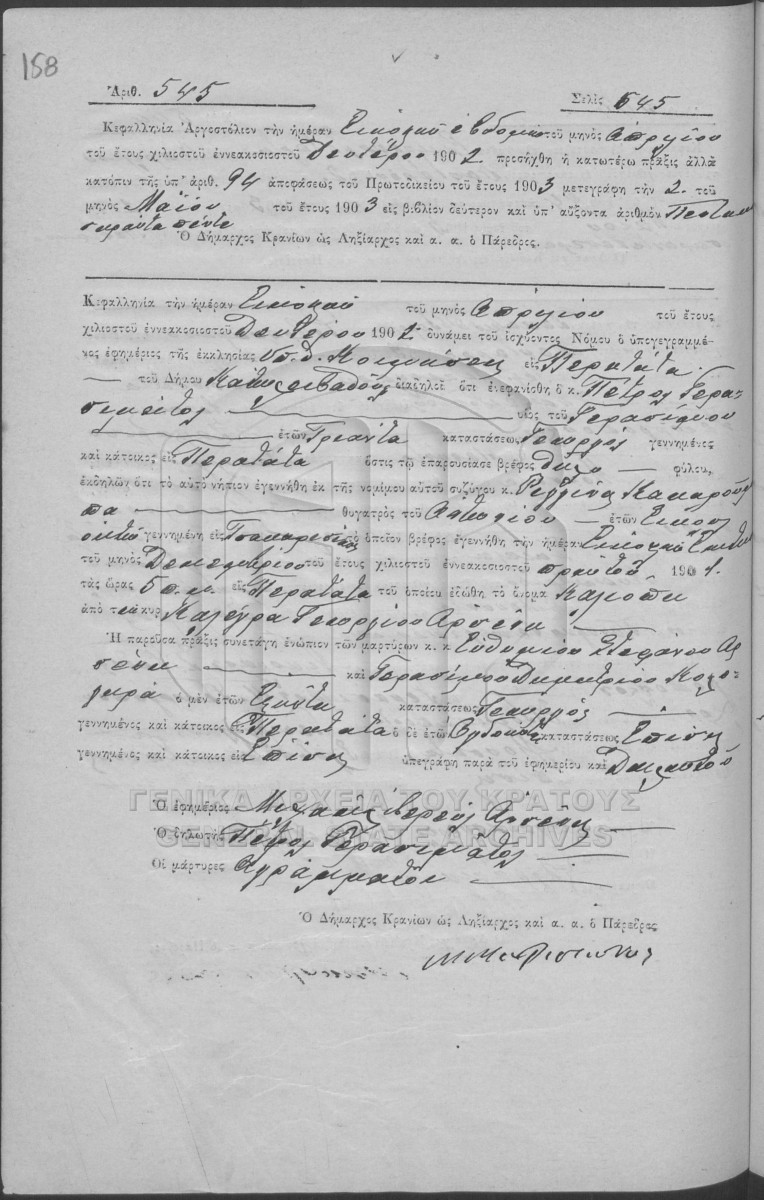 158
Ἀριθ. 545 Σελὶς 545
Κεφαλληνία Ἀργοστόλιον τὴν ἡμέραν Εἰκοστὴν ἑβδόμην τοῦ μηνὸς Ἀπριλίου
τοῦ ἔτους χιλιοστοῦ ἐννεακοσιοστοῦ Δευτέρου 1902 προσήχθη ἡ κατωτέρω πρᾶξις ἀλλὰ
κατόπιν τῆς ὑπ' ἀριθ. 94 ἀποφάσεως τοῦ Πρωτοδικείου τοῦ ἔτους 1903 μετεγράφη τὴν 2 τοῦ
μηνὸς Μαΐου τοῦ ἔτους 1903 εἰς βιβλίον δεύτερον καὶ ὑπ' αὔξοντα ἀριθμὸν
σαράντα πέντε
Ὁ Δήμαρχος Κρανίων ὡς Ληξίαρχος καὶ α. α. ὁ Πάρεδρος.
Κεφαλληνία τὴν ἡμέραν Εἰκοστὴν τοῦ μηνὸς Ἀπριλίου τοῦ ἔτους
χιλιοστοῦ ἐννεακοσιοστοῦ Δευτέρου 1902 δυνάμει τοῦ ἰσχύοντος Νόμου ὁ ὑπογεγραμμέ-
νος ἐφημέριος τῆς ἐκκλησίας Κοιμήσεως εἰς Περατάτα
τοῦ Δήμου διαδηλοῖ ὅτι ἐνεφανίσθη ὁ κ. Πέτρος Γερα-
σιμᾶτος υἱὸς τοῦ Γερασίμου
ἐτῶν Τριάντα καταστάσεως Γεωργὸς γεννημένος
καὶ κάτοικος εἰς Περατάτα ὅστις τῷ ἐπαρουσίασε βρέφος θήλεο φύλου,
ἐκδηλῶν ὅτι τὸ αὐτὸ νήπιον ἐγεννήθη ἐκ τῆς νομίμου αὐτοῦ συζύγου κ. Ρεγγίνας
θυγατρὸς τοῦ ἐτῶν Εἴκοσι
ὀκτὼ γεννημένη εἰς τὸ ὁποῖον βρέφος ἐγεννήθη τὴν ἡμέραν Εἰκοστὴν
τοῦ μηνὸς Δεκεμβρίου τοῦ ἔτους χιλιοστοῦ ἐννεακοσιοστοῦ πρώτου 1901.
τὰς ὥρας 5 π.μ. εἰς Περατάτα τοῦ ὁποίου ἐδώθη τὸ ὄνομα Καλιόπη
ἀπὸ τὴν κυρ Γεωργίου Ἀρσένη
Ἡ παροῦσα πρᾶξις συνετάγη ἐνώπιον τῶν μαρτύρων κ. κ. Εὐθυμίου Στεφάνου Ἀρ
σένη καὶ Γερασίμου Δημητρίου
ὁ μὲν ἐτῶν Ἑξῆντα καταστάσεως Γεωργὸς
γεννημένος καὶ κάτοικος εἰς Περατάτα ὁ δὲ ἐτῶν Ὀγδοῆντα καταστάσεως Ἐπίσης
γεννημένος καὶ κάτοικος εἰς Ἐπίσης ὑπεγράφη παρὰ τοῦ ἐφημερίου καὶ Δηλωτοῦ
ΓΕΝΙΚΑ ΑΡΧΕΙΑ ΤΟΥ ΚΡΑΤΟΥΣ
GENERAL STATE ARCHIVES
Ὁ ἐφημέριος Μιχαὴλ ἱερεὺς Ἀρσένης
Ὁ δηλωτὴς Πέτρος Γερασιμᾶτος
Οἱ μάρτυρες Ἀγράμματοι
Ὁ Δήμαρχος Κρανίων ὡς Ληξίαρχος καὶ α. α. ὁ Πάρεδρος